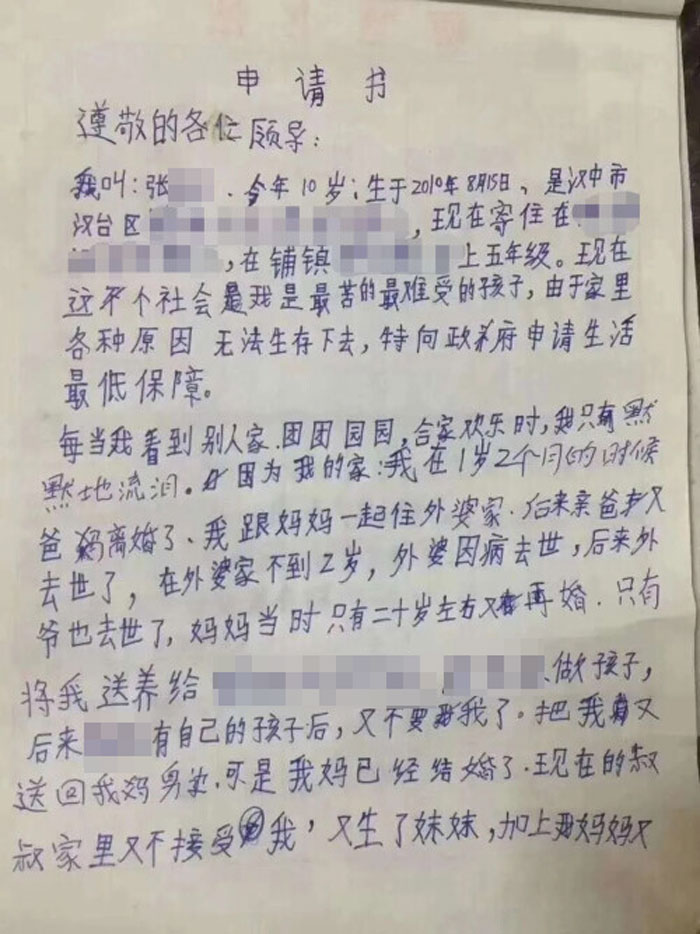 申请书
尊敬的各位领导：
我叫：张 . 今年10岁；生于2010年8月15日、是汉中市
汉台区 ，现在寄住在
，在铺镇 上五年级。现在
这个社会我是最苦的最难受的孩子，由于家里
各种原因 无法生存下去，特向政府申请生活
最低保障。
每当我看到别人家．团团园园，合家欢乐时，我只有默
默地流泪。因为我的家：我在1岁2个月的时候
爸妈离婚了．我跟妈妈一起住外婆家．后来亲爸又
去世了，在外婆家不到2岁，外婆因病去世，后来外
爷也去世了，妈妈当时只有二十岁左右又再婚．只有
将我送养给 、 做孩子，
后来 有自己的孩子后，又不要我了。把我又
送回我妈身边．可是我妈已经结婚了．现在的叔
叔家里又不接受我，又生了妹妹，加上我妈妈又